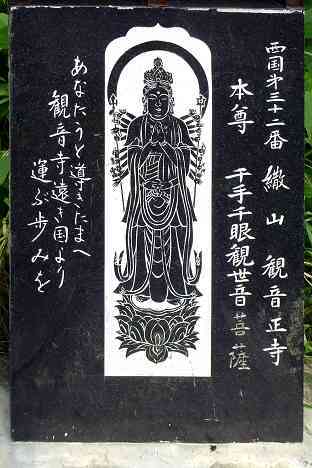 西国第三十二番 繖山 観音正寺
本尊 千手千眼観世音菩薩
あなたうと導きたまへ
観音寺遠き国より
運ぶ歩みを